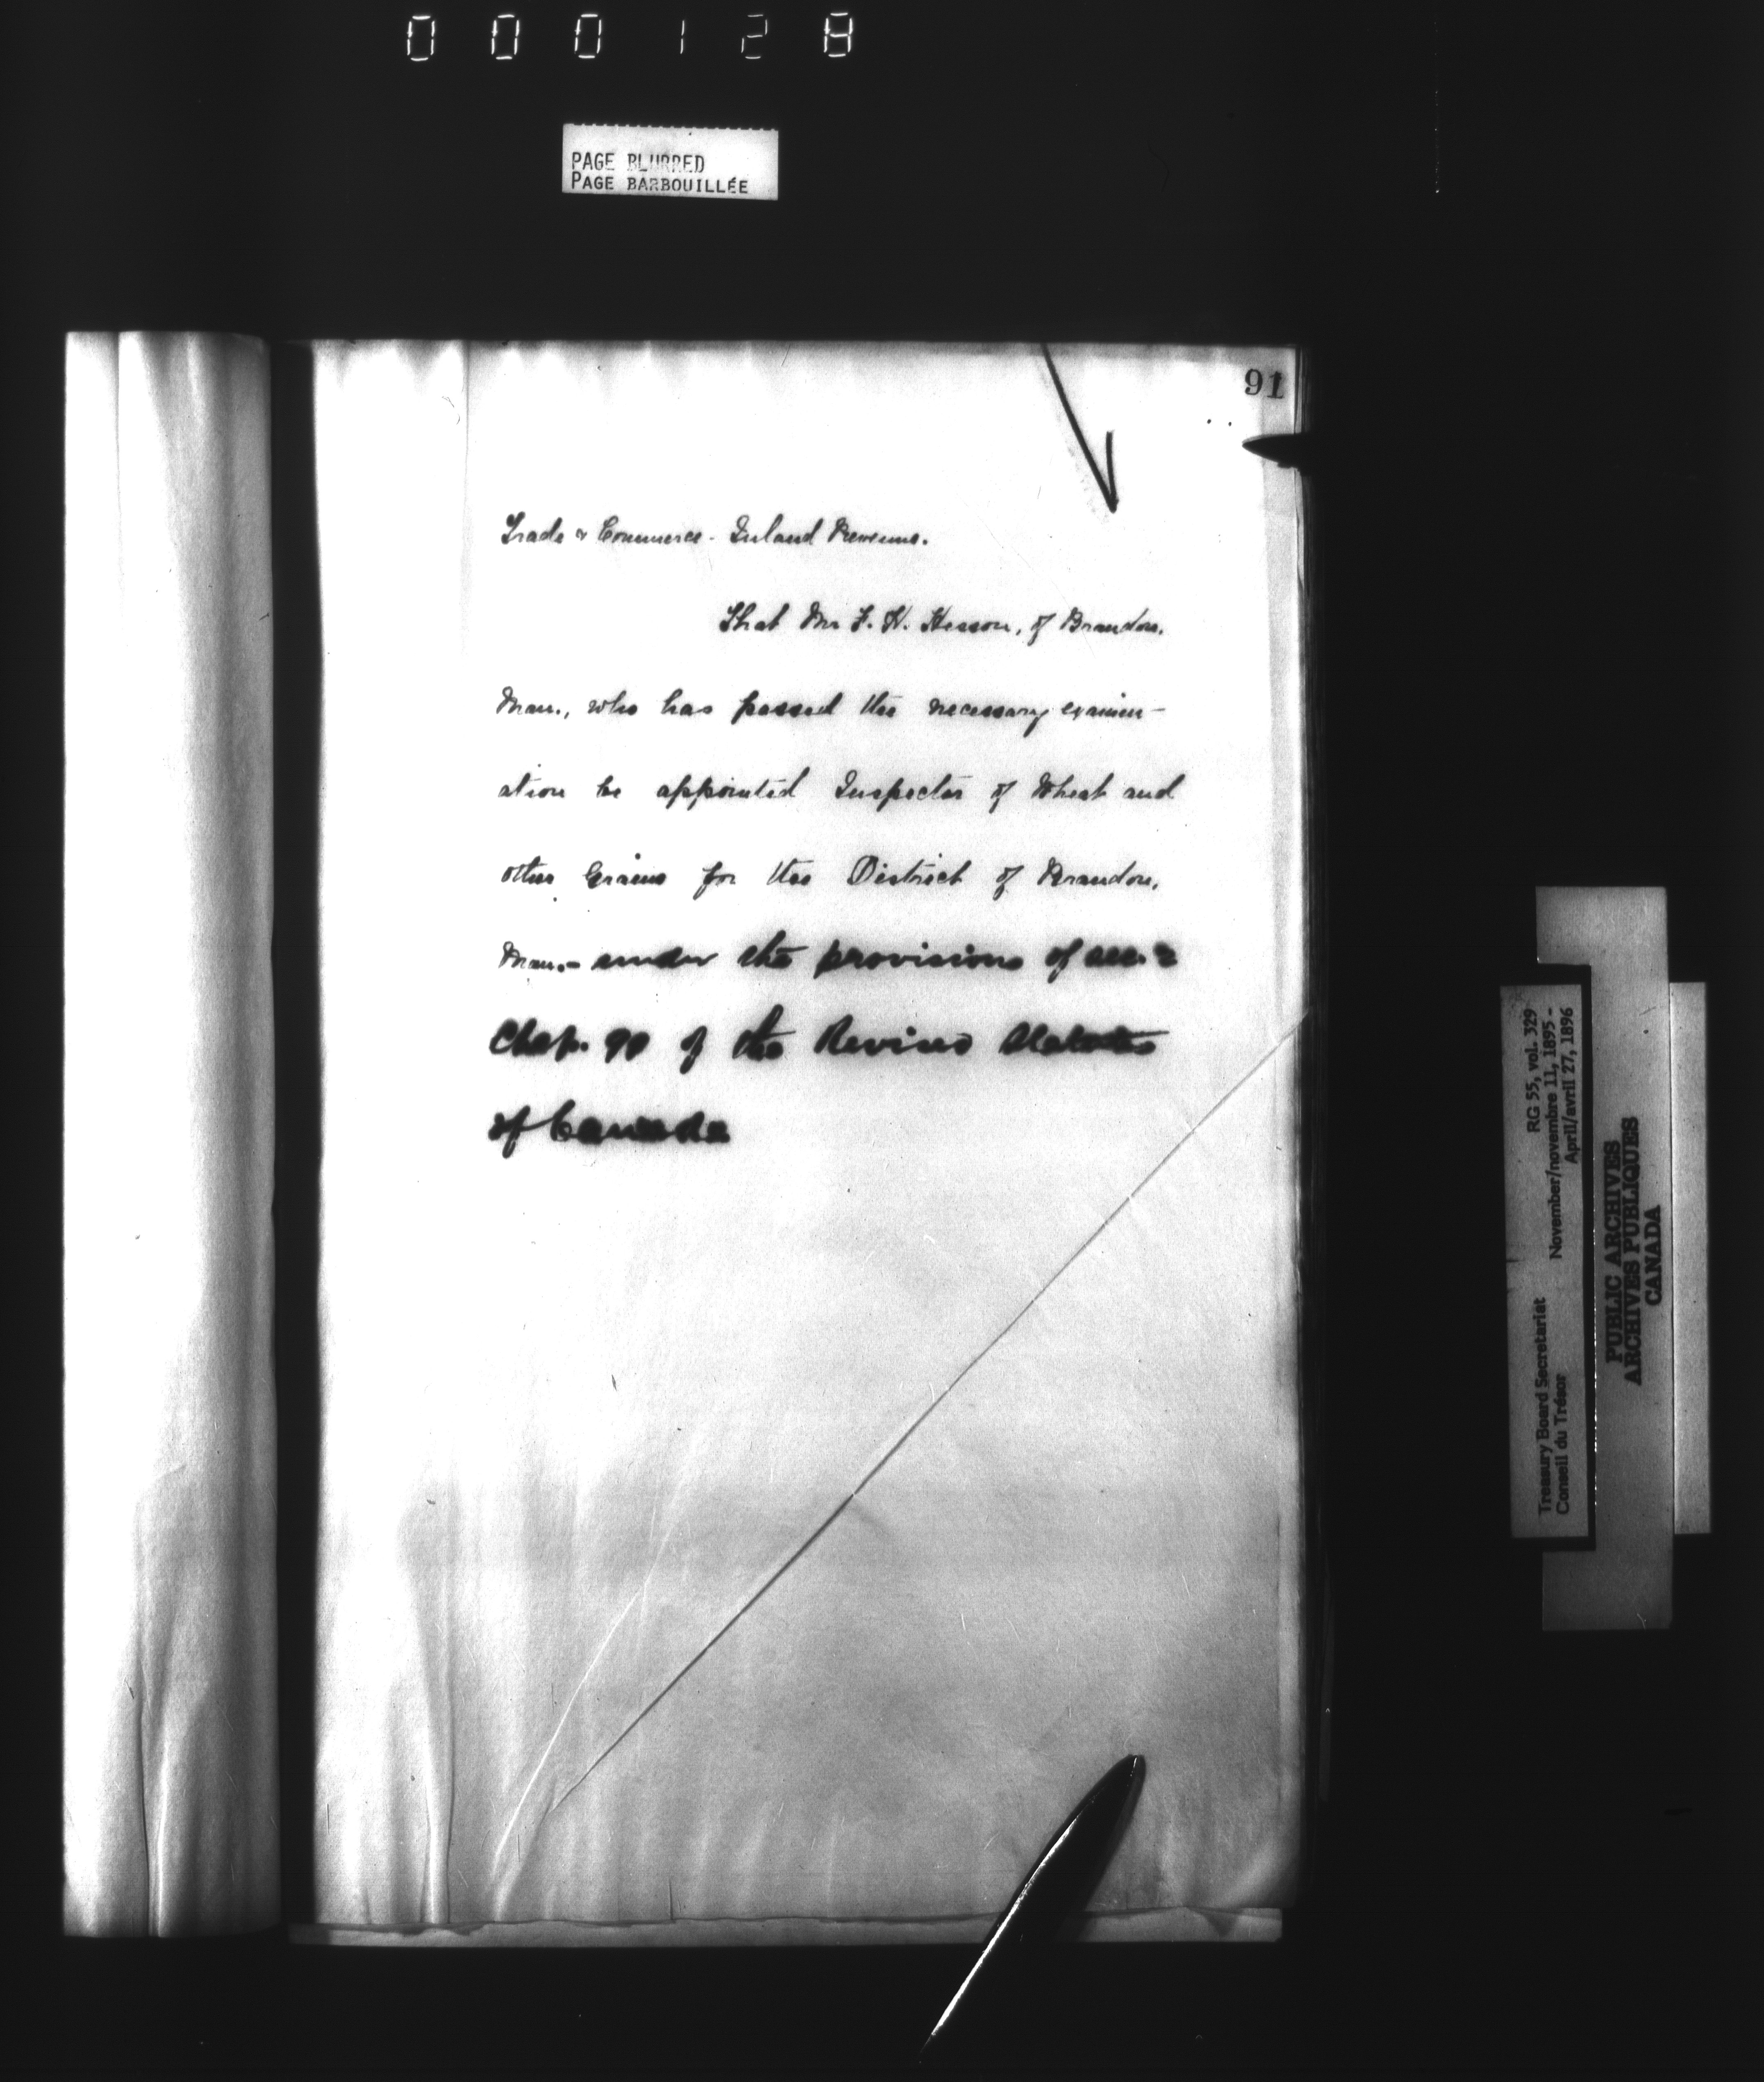 000128
PAGE BLURRED
PAGE BARBOUILLÉE
91
Trade & Commerce - Inland Revenue.
That Mr F. H. Hesson, of Brandon,
Man., who has passed the necessary examin-
ation be appointed Inspector of Wheat and
other Grains for the District of Brandon,
Man.- under the provisions of sec. 2
Chap. 99 of the Revised Statutes
of Canada
Treasury Board Secretariat RG 55, vol. 329
Conseil du Trésor November/novembre 11, 1895 -
April/avril 27, 1896
PUBLIC ARCHIVES
ARCHIVES PUBLIQUES
CANADA